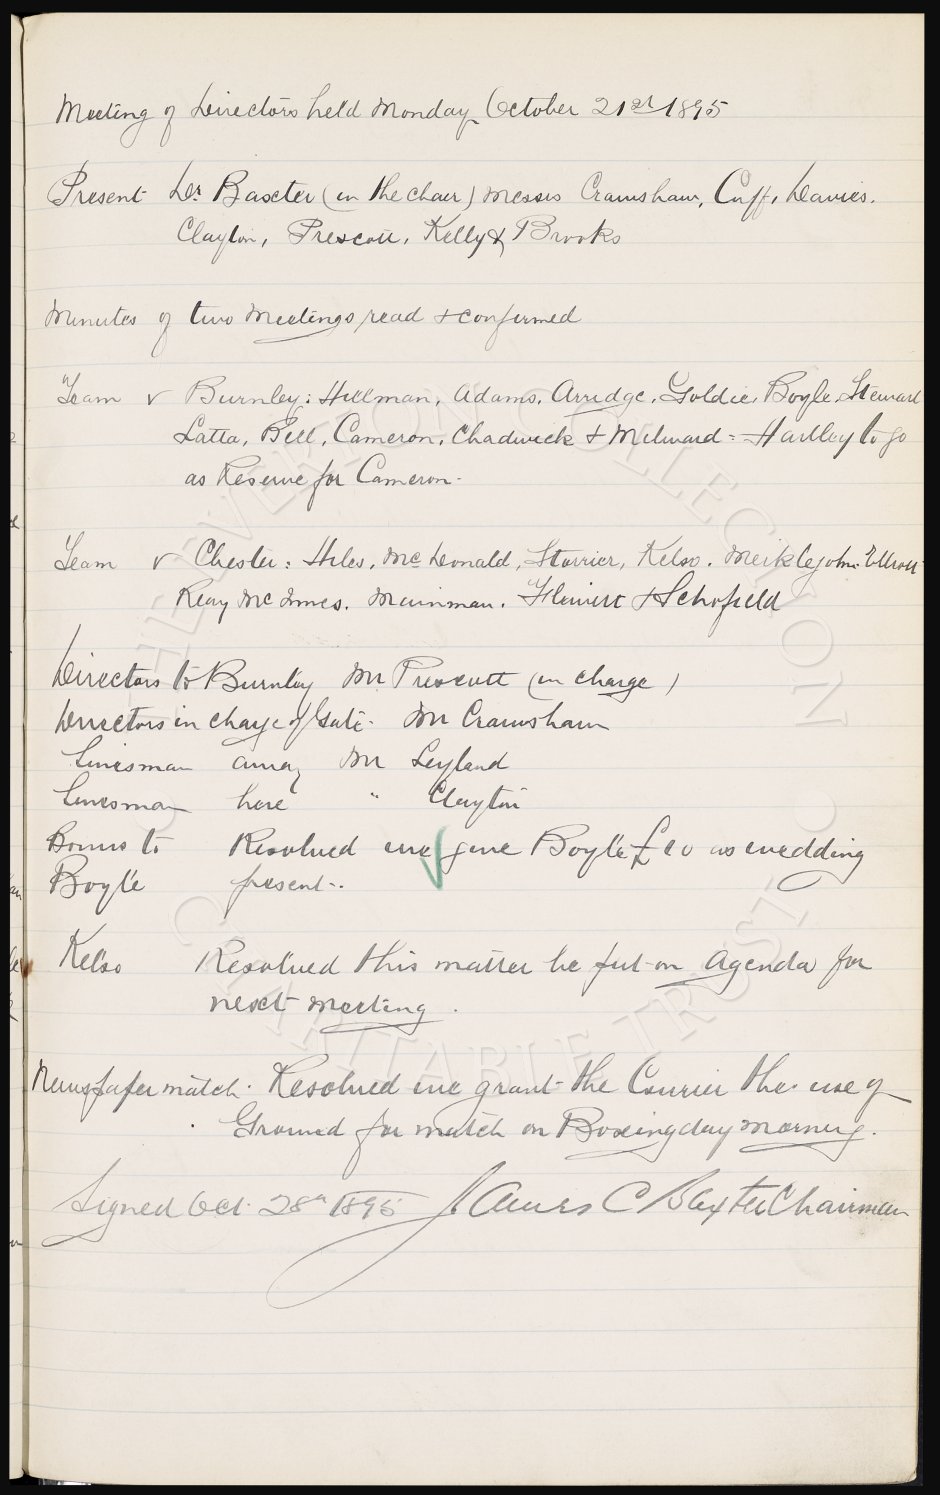 Meeting of Directors held Monday October 21st 1895
Present Dr. Baxter (in the chair) Messrs Crawshaw, Cuff, Davies.
Clayton, Prescott, Kelly & Brooks
Minutes of two Meetings read & confirmed
Team v Burnley: Hillman, Adams, Arridge, Goldie, Boyle, Stewart
Latta, Bell, Cameron, Chadwick & Milward = Hartley to go
as Reserve for Cameron.
Team v Chester: Hiles, McDonald, Storrier, Kelso, Meiklejohn Elliott
Reay McInnes, Mainman, Flewitt & Schofield
Directors to Burnley Mr Prescott (in charge)
Directors in charge of Gate. Mr Crawshaw
Linesman away Mr Leyland
Linesman here " Clayton
Bonus to Resolved we give Boyle £10 as wedding
Boyle present.
Kelso Resolved this matter be put on Agenda for
next meeting.
Newspaper match. Resolved we grant the Courier the use of
Ground for match on Boxing day morning.
Signed Oct. 28th 1895 James C Baxter Chairman
EVERTON COLLECTION
CHARITABLE TRUST